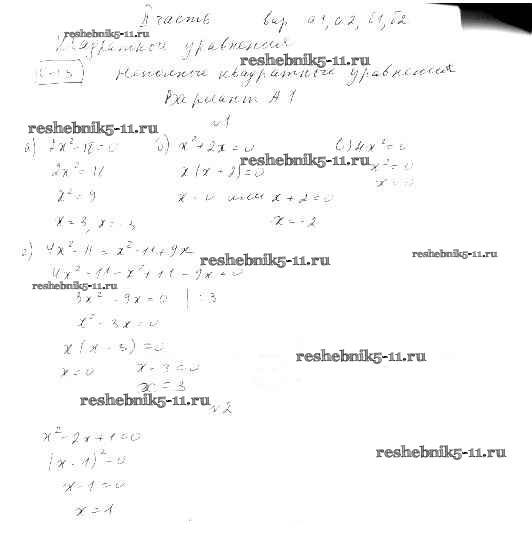 II часть вар А1, А2, Б1, Б2
reshebnik5-11.ru
Квадратные уравнения
reshebnik5-11.ru
Неполные квадратные уравнения
Вариант А1
№1
reshebnik5-11.ru
а) 2x²-18=0 б) x²+2x=0 в) 4x²=0
reshebnik5-11.ru
2x²=18 x(x+2)=0 x²=0
x²=9 x=0 или x+2=0 x=0
x=3, x=-3 x=-2
г) 4x²-11=x²-11+9x
reshebnik5-11.ru
reshebnik5-11.ru
4x²-11-x²+11-9x=0
reshebnik5-11.ru
3x²-9x=0 | :3
x²-3x=0
x(x-3)=0
reshebnik5-11.ru
x=0 x-3=0
x=3
reshebnik5-11.ru
№2
x²-2x+1=0
reshebnik5-11.ru
(x-1)²=0
x-1=0
x=1